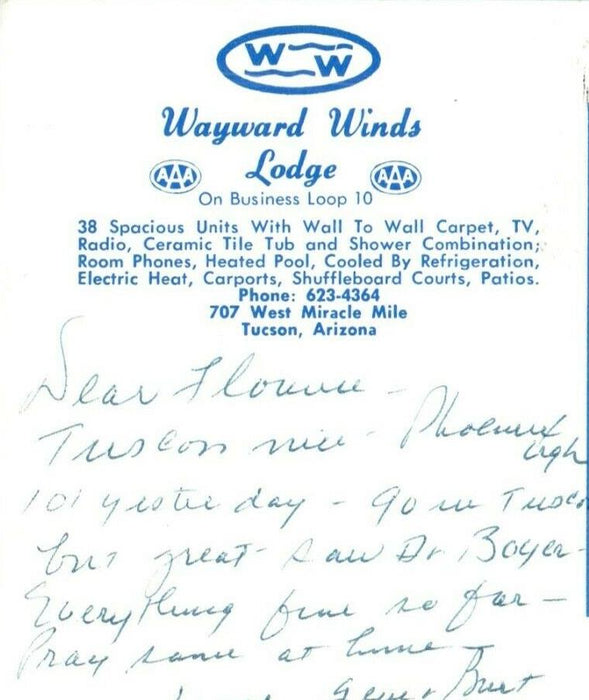 W W
Wayward Winds
Lodge
AAA AAA
On Business Loop 10
38 Spacious Units With Wall To Wall Carpet, TV,
Radio, Ceramic Tile Tub and Shower Combination;
Room Phones, Heated Pool, Cooled By Refrigeration,
Electric Heat, Carports, Shuffleboard Courts, Patios.
Phone: 623-4364
707 West Miracle Mile
Tucson, Arizona
Dear Florence -
Tuscon nice - Phoenix
ugh
101 yesterday - 90 in Tusco
but great - saw Dr Boyer -
Everything fine so far -
Pray same at home -
Burt